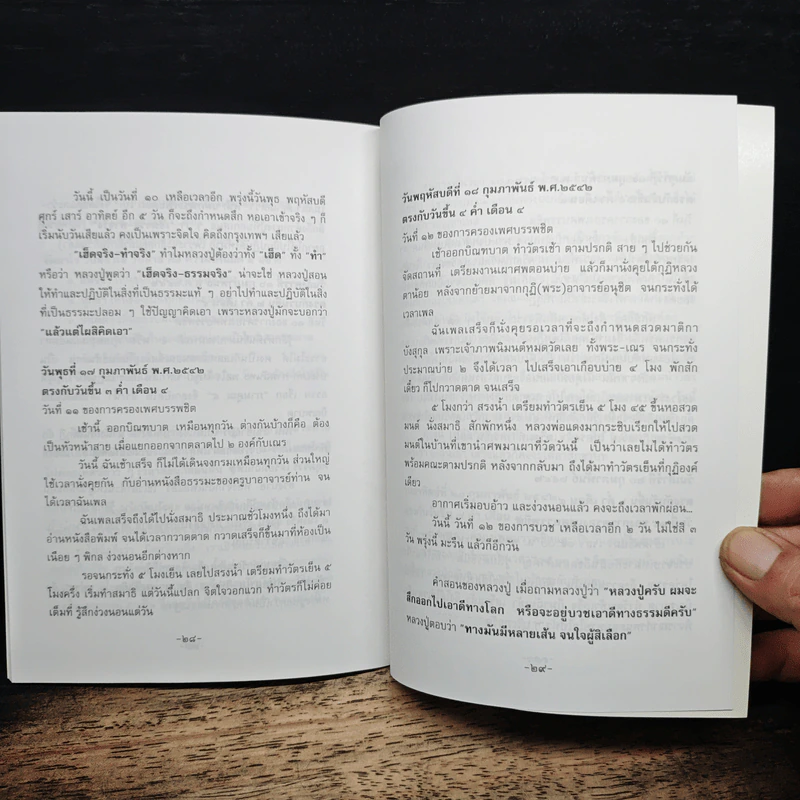 วันนี้ เป็นวันที่ ๑๐ เหลือเวลาอีก พรุ่งนี้วันพุธ พฤหัสบดี
ศุกร์ เสาร์ อาทิตย์ อีก ๕ วัน ก็จะถึงกำหนดสึก หอเอาเข้าจริง ๆ ก็
เริ่มนับวันเสียแล้ว คงเป็นเพราะจิตใจ คิดถึงกรุงเทพฯ เสียแล้ว
"เฮ็ดจริง-ทำจริง" ทำไมหลวงปู่ต้องว่าทั้ง "เฮ็ด" ทั้ง "ทำ"
หรือว่า หลวงปู่พูดว่า "เฮ็ดจริง-ธรรมจริง" น่าจะใช่ หลวงปู่สอน
ให้ทำและปฏิบัติในสิ่งที่เป็นธรรมะแท้ ๆ อย่าไปทำและปฏิบัติในสิ่ง
ที่เป็นธรรมะปลอม ๆ ใช้ปัญญาคิดเอา เพราะหลวงปู่มักจะบอกว่า
"แล้วแต่ไผสิคิดเอา"
วันพุธที่ ๑๗ กุมภาพันธ์ พ.ศ.๒๕๔๒
ตรงกับวันขึ้น ๓ ค่ำ เดือน ๔
วันที่ ๑๑ ของการครองเพศบรรพชิต
เช้านี้ ออกบิณฑบาต เหมือนทุกวัน ต่างกันบ้างก็คือ ต้อง
เป็นหัวหน้าสาย เมื่อแยกออกจากตลาดไป ๒ องค์กับเณร
วันนี้ ฉันเช้าเสร็จ ก็ไม่ได้เดินจงกรมเหมือนทุกวัน ส่วนใหญ่
ใช้เวลานั่งคุยกัน กับอ่านหนังสือธรรมะของครูบาอาจารย์ท่าน จน
ได้เวลาฉันเพล
ฉันเพลเสร็จถึงได้ไปนั่งสมาธิ ประมาณชั่วโมงหนึ่ง ถึงได้มา
อ่านหนังสือพิมพ์ จนได้เวลากวาดตาด กวาดเสร็จก็ขึ้นมาที่ห้องเป็น
เนือย ๆ พิกล ง่วงนอนอีกต่างหาก
รอจนกระทั่ง ๕ โมงเย็น เลยไปสรงน้ำ เตรียมทำวัตรเย็น ๕
โมงครึ่ง เริ่มทำสมาธิ แต่วันนี้แปลก จิตใจวอกแวก ทำวัตรก็ไม่ค่อย
เต็มที่ รู้สึกง่วงนอนแต่วัน
-๒๘-
วันพฤหัสบดีที่ ๑๘ กุมภาพันธ์ พ.ศ.๒๕๔๒
ตรงกับวันขึ้น ๔ ค่ำ เดือน ๔
วันที่ ๑๒ ของการครองเพศบรรพชิต
เช้าออกบิณฑบาต ทำวัตรเช้า ตามปรกติ สาย ๆ ไปช่วยกัน
จัดสถานที่ เตรียมงานเผาศพตอนบ่าย แล้วก็มานั่งคุยใต้กุฏิหลวง
ตาน้อย หลังจากย้ายมาจากกุฏิ(พระ)อาจารย์อนุชิต จนกระทั่งได้
เวลาเพล
ฉันเพลเสร็จก็นั่งคุยรอเวลาที่จะถึงกำหนดสวดมาติกา
บังสุกุล เพราะเจ้าภาพนิมนต์หมดวัดเลย ทั้งพระ-เณร จนกระทั่ง
ประมาณบ่าย ๒ จึงได้เวลา ไปเสร็จเอาเกือบบ่าย ๔ โมง พักสัก
เดี๋ยวก็ไปกวาดตาด จนเสร็จ
๕ โมงกว่า สรงน้ำ เตรียมทำวัตรเย็น ๕ โมง ๔๕ ขึ้นหอสวด
มนต์ นั่งสมาธิ สักพักหนึ่ง หลวงพ่อแดงมากระซิบเรียกให้ไปสวด
มนต์ในบ้านที่เขานำศพมาเผาที่วัดวันนี้ เป็นว่าเลยไม่ได้ทำวัตร
พร้อมคณะตามปรกติ หลังจากกลับมา ถึงได้มาทำวัตรเย็นที่กุฏิองค์
เดียว
อากาศเริ่มอบอ้าว และง่วงนอนแล้ว คงจะถึงเวลาพักผ่อน...
วันนี้ วันที่ ๑๒ ของการบวช เหลือเวลาอีก ๒ วัน ไม่ใช่สิ ๓
วัน พรุ่งนี้ มะรืน แล้วก็อีกวัน
คำสอนของหลวงปู่ เมื่อถามหลวงปู่ว่า "หลวงปู่ครับ ผมจะ
สึกออกไปเอาดีทางโลก หรือจะอยู่บวชเอาดีทางธรรมดีครับ"
หลวงปู่ตอบว่า "ทางมันมีหลายเส้น จนใจผู้สิเลือก"
-๒๙-